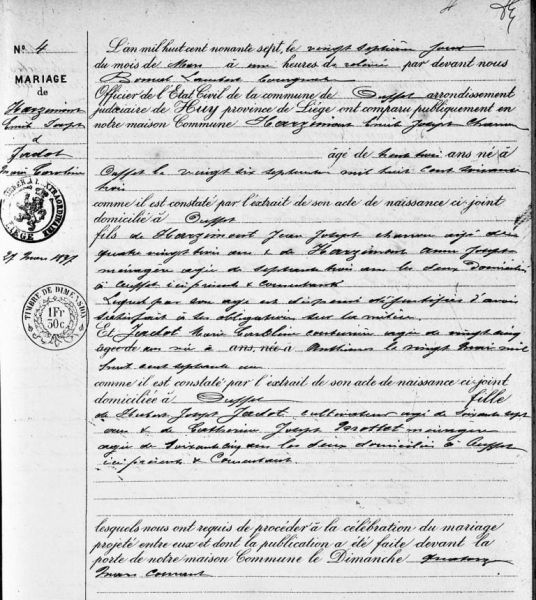 N° 4
MARIAGE
de
Harzimont
Emile Joseph
&
Jadot
Marie Caroline
27 Mars 1897
TIMBRE DE DIMENSION
1 Fr
30c
L'an mil huit cent nonante sept, le vingt septième jour
du mois de Mars à heures de par devant nous
Lambert
Officier de l'État Civil de la commune de Ouffet arrondissement
judiciaire de Huy province de Liége ont comparu publiquement en
notre maison Commune Harzimont Emile Joseph
âgé de trente trois ans né à
Ouffet le vingt six septembre mil huit cent soixante
trois
comme il est constaté par l'extrait de son acte de naissance ci-joint
domicilié à Ouffet
fils de Harzimont Jean Joseph âgé de
quatre vingt trois ans & de Harzimont Anne Joseph
ménagère âgée de septante trois ans les deux domiciliés
à Ouffet ici présents & consentants
Lequel par son age est dispensé de justifier d'avoir
satisfait à ses obligations sur la milice.
Et Jadot Marie couturière agée de vingt cinq
ans, née à le vingt mai mil
huit cent septante un
comme il est constaté par l'extrait de son acte de naissance ci-joint
domiciliée à Ouffet fille
de Hubert Joseph Jadot cultivateur agé de soixante sept
ans & de Catherine Joseph Mottet ménagère
agée de soixante cinq ans les deux domiciliés à Ouffet
ici présents & consentants.
lesquels nous ont requis de procéder à la célébration du mariage
projeté entre eux et dont la publication a été faite devant la
porte de notre maison Commune le Dimanche quatorze
mars courant